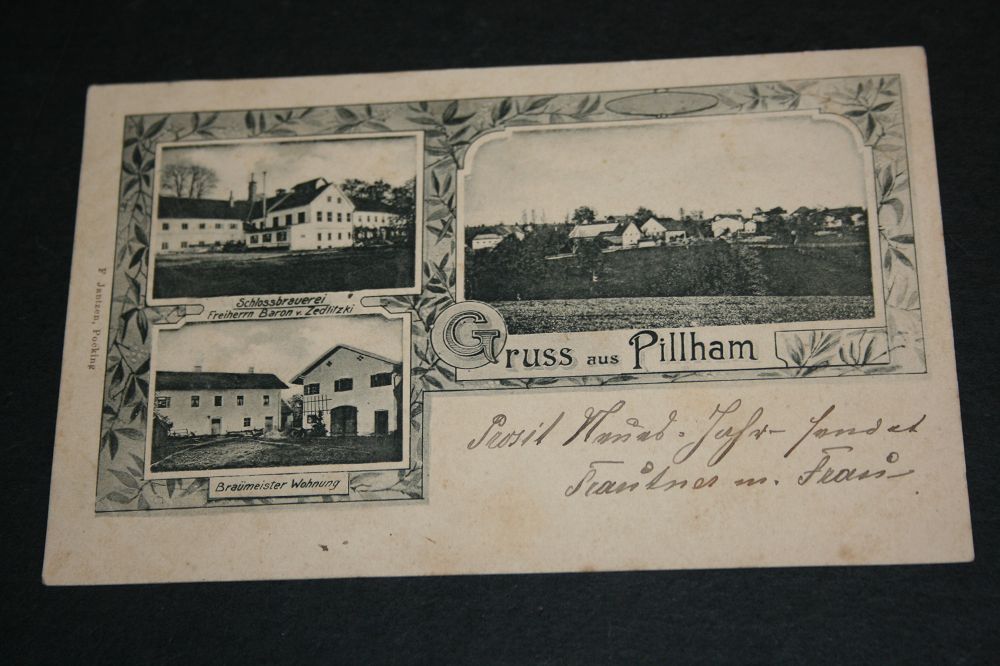 Schlossbrauerei
Freiherrn Baron v. Zedlitzki
Gruss aus Pillham
Braümeister Wohnung
Prosit Neues-Jahr sendet
Trautner m. Frau
F Jantzen, Pocking